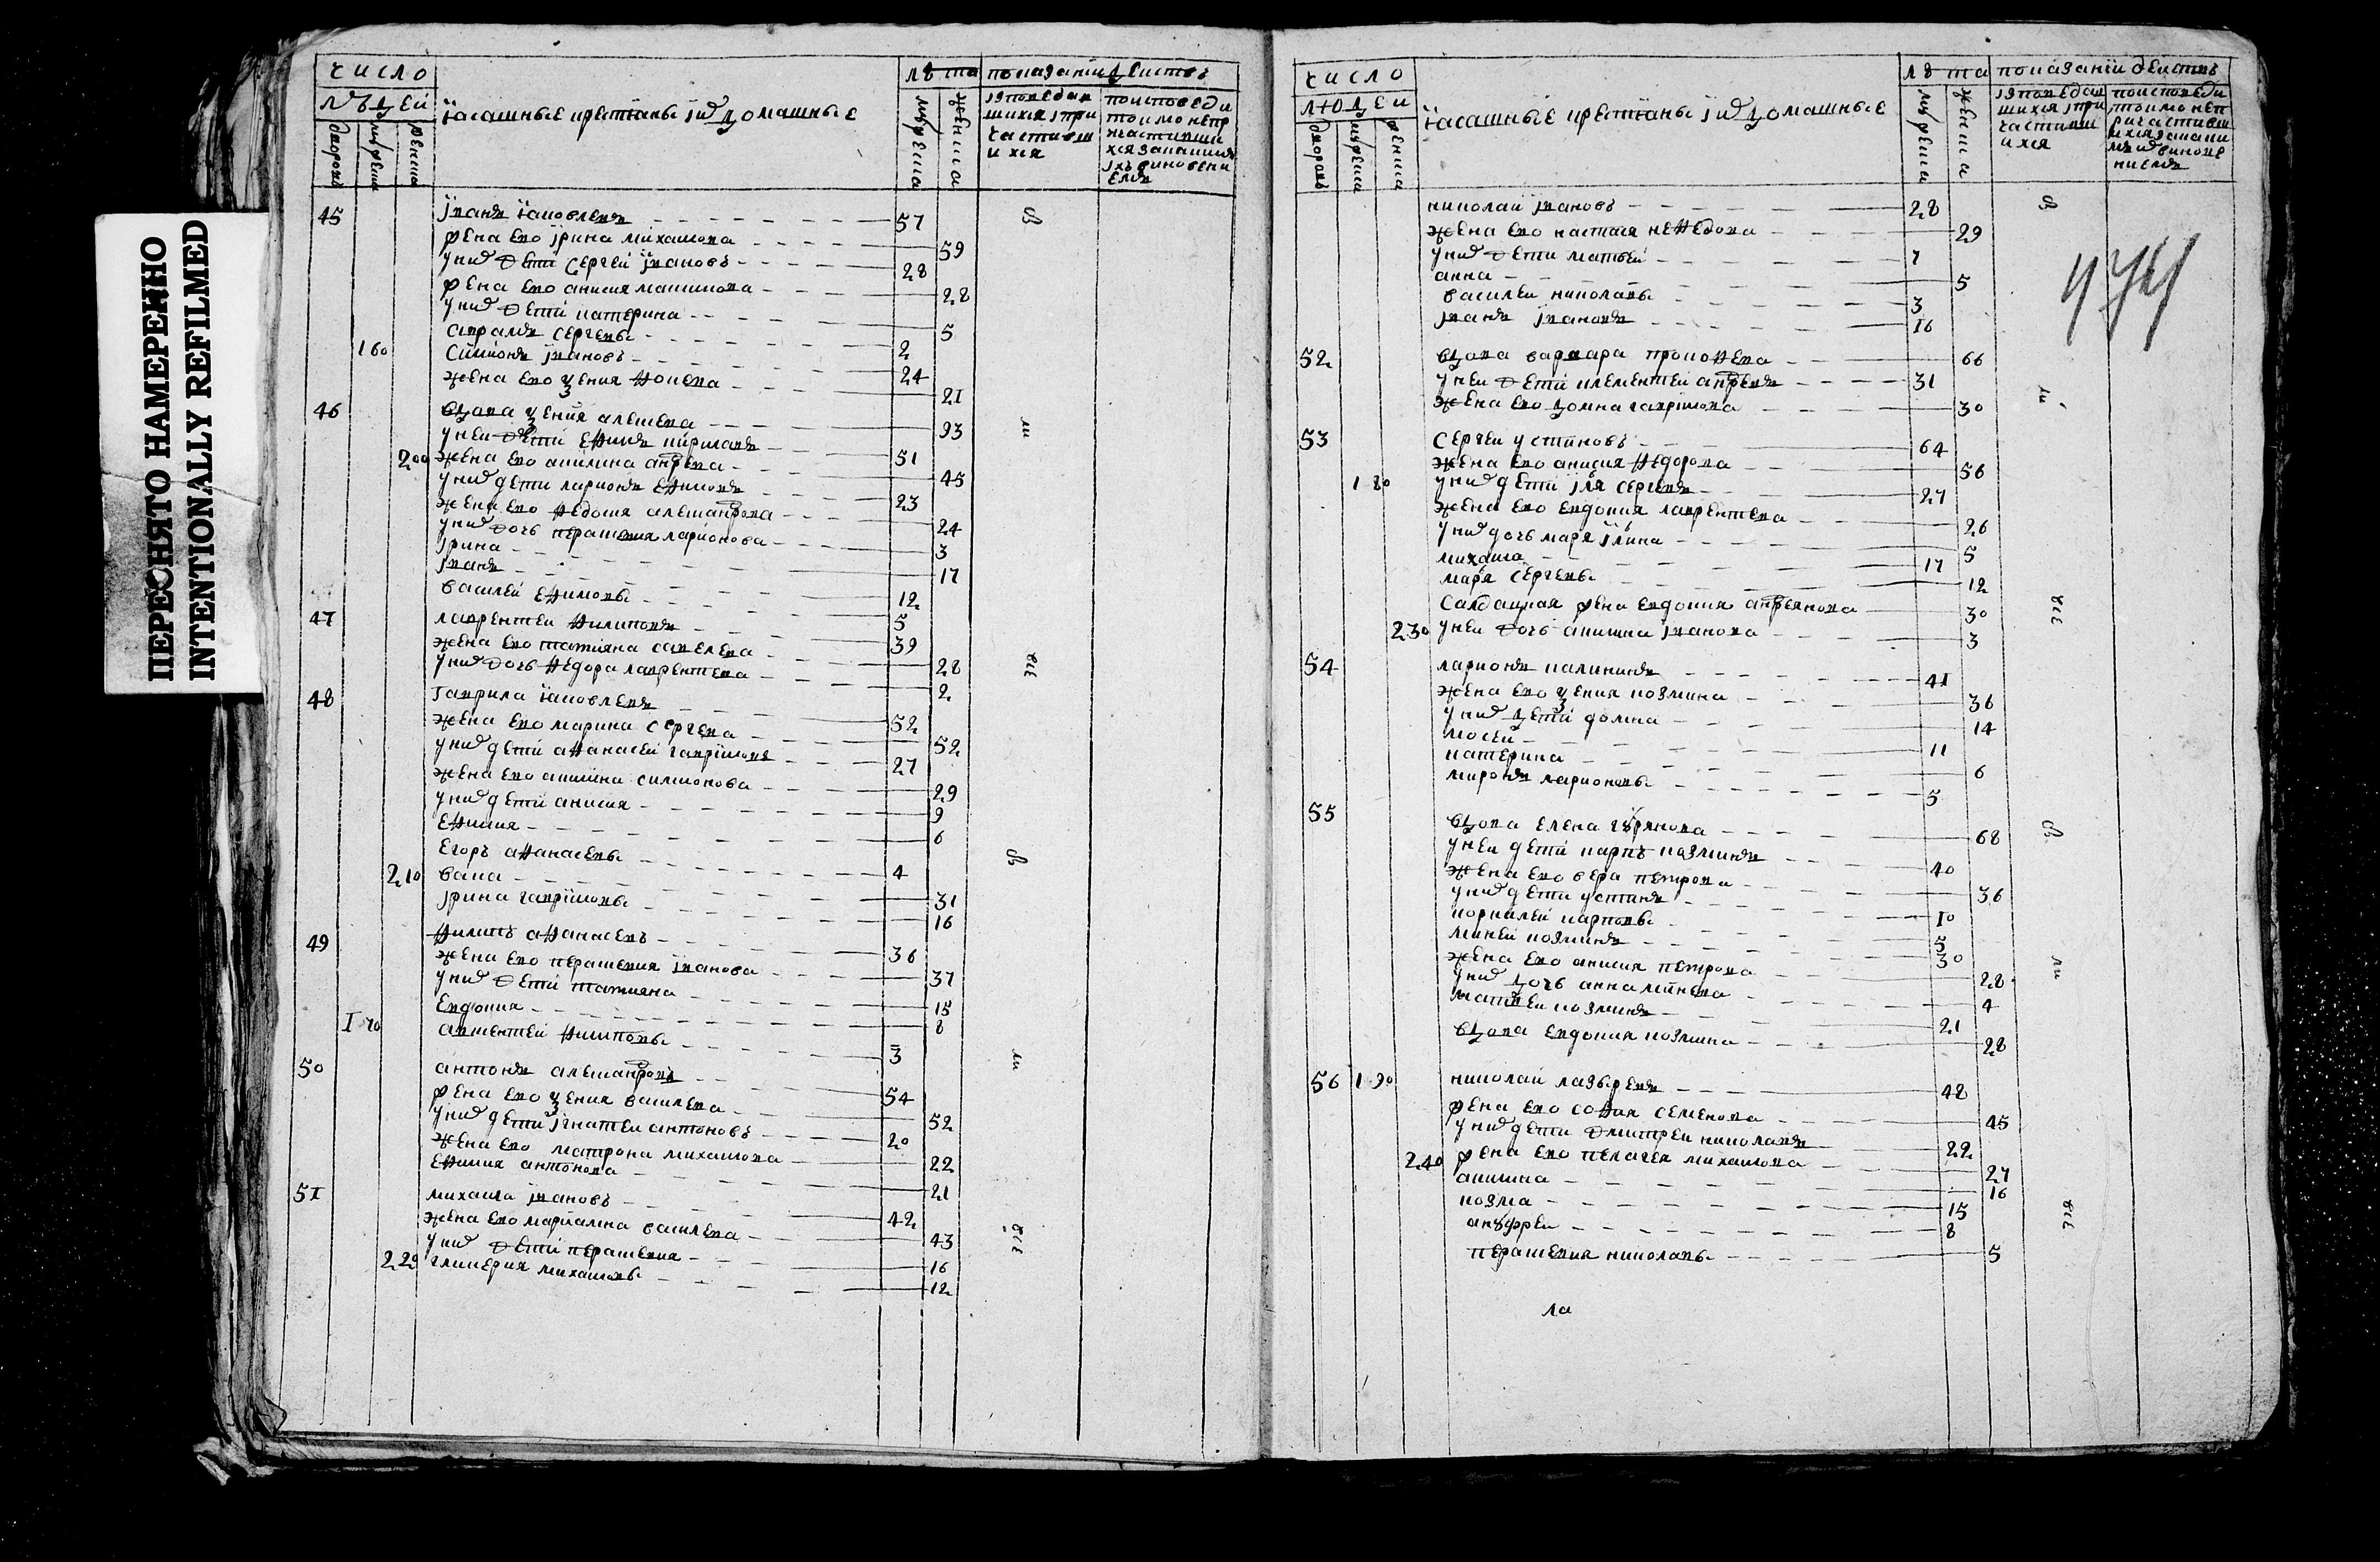 ПЕРЕСНЯТО НАМЕРЕННО
INTENTIONALLY REFILMED
число
людей
дворовъ
мужеска
женска
ясашные крестьяне и их домашные
лѣта
мужеска
женска
показание действъ
исповедав
шихся и при
частивш
ихся
по исповеди
токмо непр
частивши
хся за каким
их виновени
ем
45 иванъ яковлевъ 57
жена ево ирина михаилова 59
у них дети сергей ивановъ 28
жена ево анисия максимова 28
у них дети катерина 5
авраамъ сергеевы 2
160 симионъ ивановъ 24
жена ево ксения фокева 21
46 вдова ксения алексева 93
у неи дети ефимъ кирилавъ 51
200 жена ево акилина андрева 45
у них дети ларионъ ефимовъ 23
жена ево федосия александрова 24
у них дочь перасковия ларионова 3
ирина 17
иванъ 12
василей ефимовы 5
47 лаврентеи филиповъ 39
жена ево татияна савелева 28
у них дочь федора лаврентева 2
48 гаврила яковлевъ 52
жена ево марина сергева 52
у них дети афанасеи гавриловъ 27
жена ево акилина симионова 29
у них дети анисия 9
ефимия 6
егоръ афанасевы 4
210 васа 31
ирина гавриловы 16
49 филипъ афанасевъ 36
жена ево перасковия иванова 37
у них дети татияна 15
евдокия 8
170 авксентей филиповы 3
50 антонъ александровъ 54
жена ево ксения василева 52
у них дети игнатеи антоновъ 20
жена ево матрона михаилова 22
ефимия антонова 21
51 михаила ивановъ 42
жена ево мариамна василева 43
у них дети перасковия 16
220 гликерия михаиловы 12
в
ли
все
в
ли
все
число
людеи
дворовъ
мужеска
женска
ясашные крестьяне и их домашные
лѣта
мужеска
женска
показании действъ
исповедав
шихся и при
частивши
ихся
по исповеди
токмо неп
ричастивш
ихся за каки
мъ их виное
нием
николай ивановъ 28
жена ево настася нефедова 29
у них дети матвеи 7
анна 5
василеи николавы 3
иванъ ивановъ 16
52 вдова варвара прокофева 66
у неи дети клементеи андревъ 31
жена ево домна гаврилова 30
53 сергеи устиновъ 64
жена ево анисия федорова 56
180 у них дети иля сергевъ 27
жена ево евдокия лаврентева 26
у них дочь маря илина 5
михаила 17
маря сергевы 12
салдацкая жена евдокия андреянова 30
230 у неи дочь акилина иванова 3
54 ларионъ калининъ 41
жена ево ксения козмина 36
у них дети домна 14
мосеи 11
катерина 6
миронъ ларионовы 5
55 вдова елена гурянова 68
у неи дети карпъ козминъ 40
жена ево вера петрова 36
у них дети устинъ 10
корнилеи карповы 5
минеи козминъ 30
жена ево анисия петрова 28
у них дочь анна минева 4
матфеи козминъ 21
вдова евдокия козмина 28
56 190 николаи лазыревъ 48
жена ево софия семенова 45
у них дети дмитреи николавъ 22
240 жена ево пелагея михаилова 27
акилина 16
козма 15
ануфреи 8
перасковия николавы 5
в
ли
все
в
ли
все
474
ла